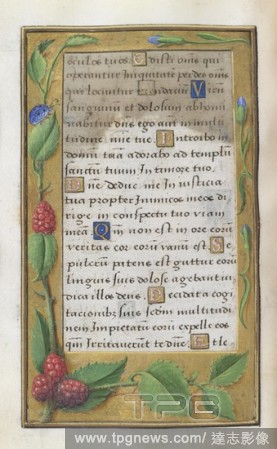 oculos tuos Odisti omēs qui
operantur iniquitatē perdes omēs
qui locuntur mendaciū Virū
sanguinū et dolosum abhomi
nabitur dn̄s ego aut̄ in multi
tudine mīe tue Introibo in
domū tuā adorabo ad templū
sanctū tuum In timore tuo
Dn̄e deduc me In iusticia
tua propter Inimicos meos di
rige in conspectu tuo viam
meā Qm̄ non est in ore eorū
veritas cor eorū vanū est Se
pulcrum patens est guttur eorū
linguis suis dolose agebant iu
dica illos deus Decidāt a cogi
tacionibꝫ suis scdm̄ multitudi
nem Impietatū eorū expelle eos
qm̄ Irritaverūt te dn̄e Et le
TPG
www.tpgnews.com / 達志影像